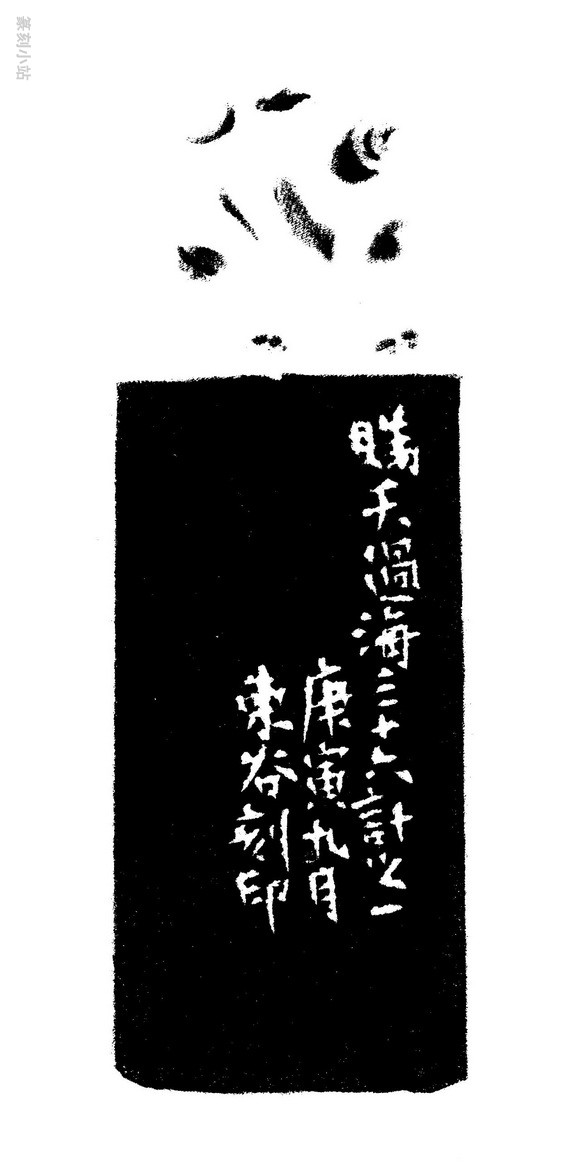 瞞天過海三十六計之一
庚寅九月
東谷刻印
篆刻小站